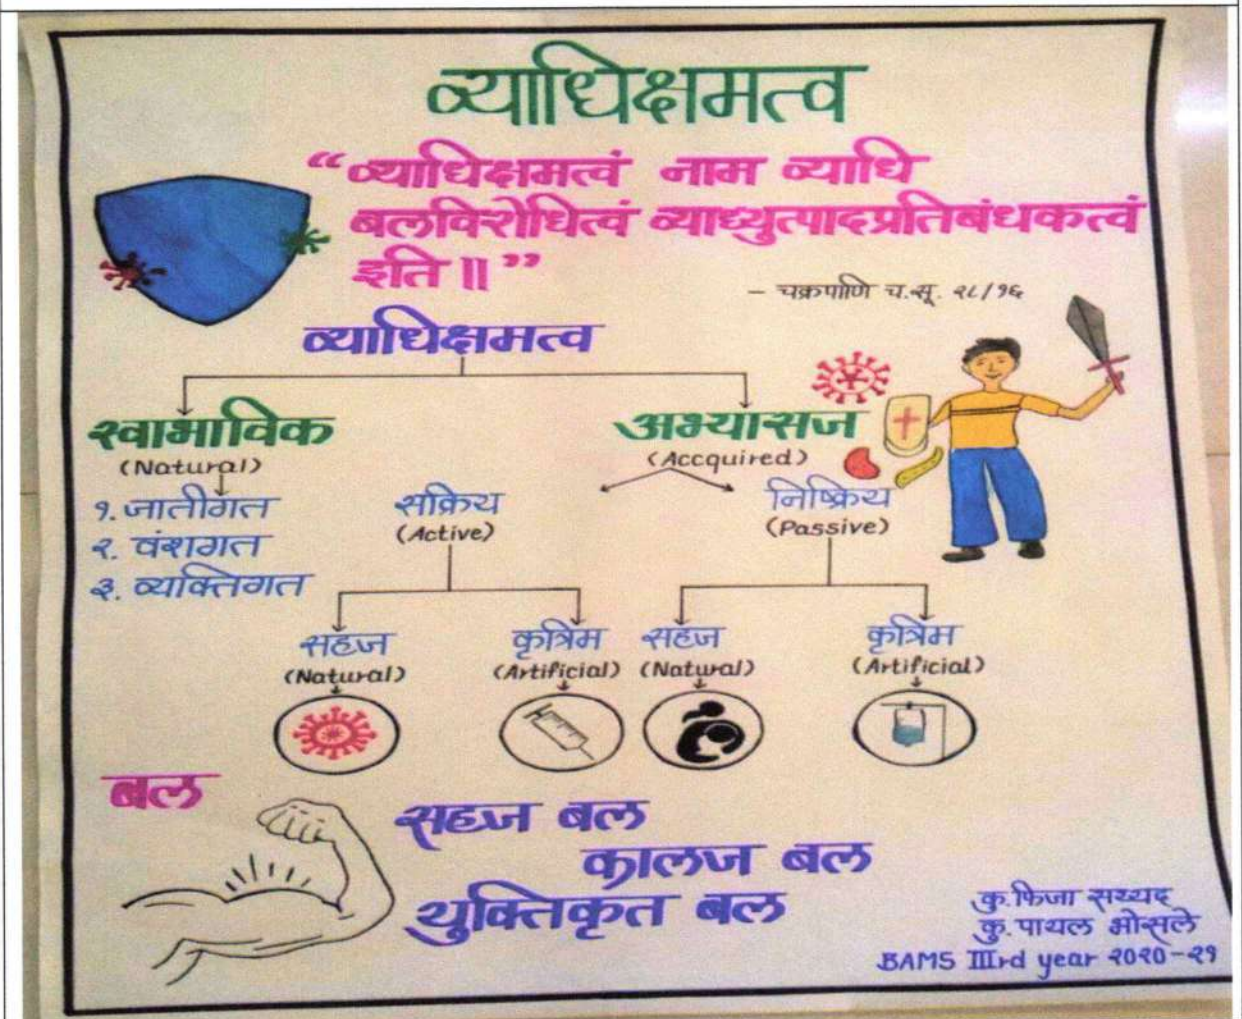 व्याधिक्षमत्व
“व्याधिक्षमत्वं नाम व्याधि
बलविरोधित्वं व्याध्युत्पादप्रतिबंधकत्वं
इति॥”
- चक्रपाणि च.सू. २८/१६
व्याधिक्षमत्व
स्वाभाविक
(Natural)
१. जातीगत
२. वंशगत
३. व्यक्तिगत
अभ्यासज
(Accquired)
सक्रिय
(Active)
निष्क्रिय
(Passive)
सहज
(Natural)
कृत्रिम
(Artificial)
सहज
(Natural)
कृत्रिम
(Artificial)
बल
सहज बल
कालज बल
युक्तिकृत बल
कु. फिजा सय्यद
कु. पायल भोसले
BAMS IIIrd year २०२०-२१